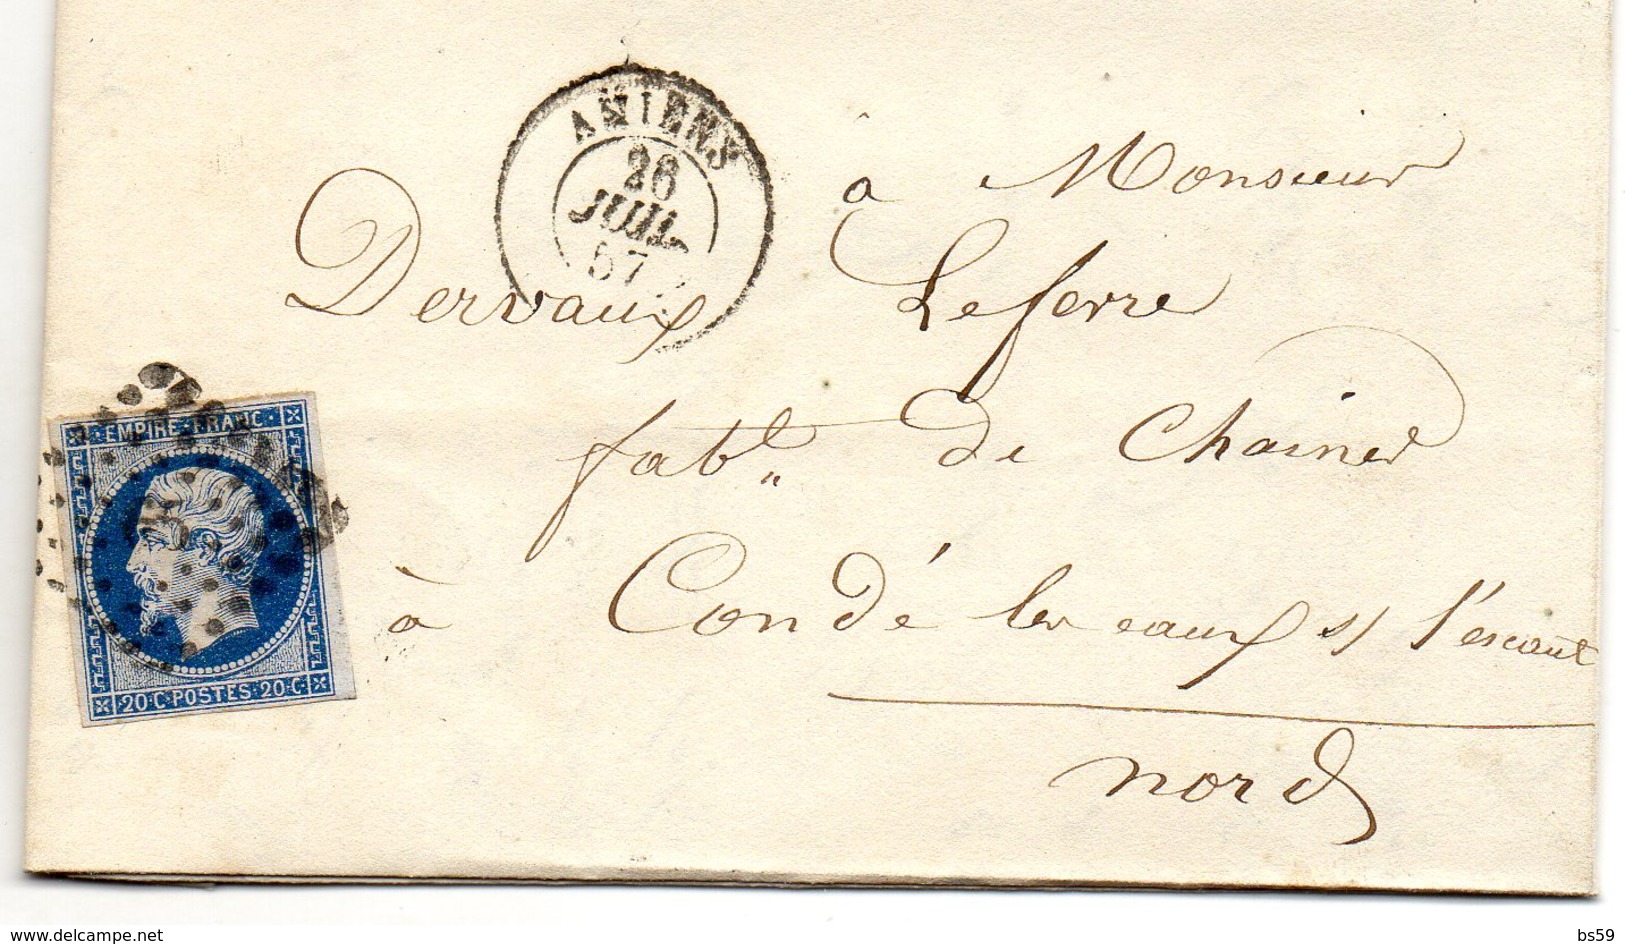 AMIENS
26
JUIL.
57
à Monsieur
Dervaux Lefevre
fabt. de Chaines
à Condé les eaux s/ l'escaut
nord
EMPIRE FRANC
20·C·POSTES·20·C·
www.delcampe.net
bs59